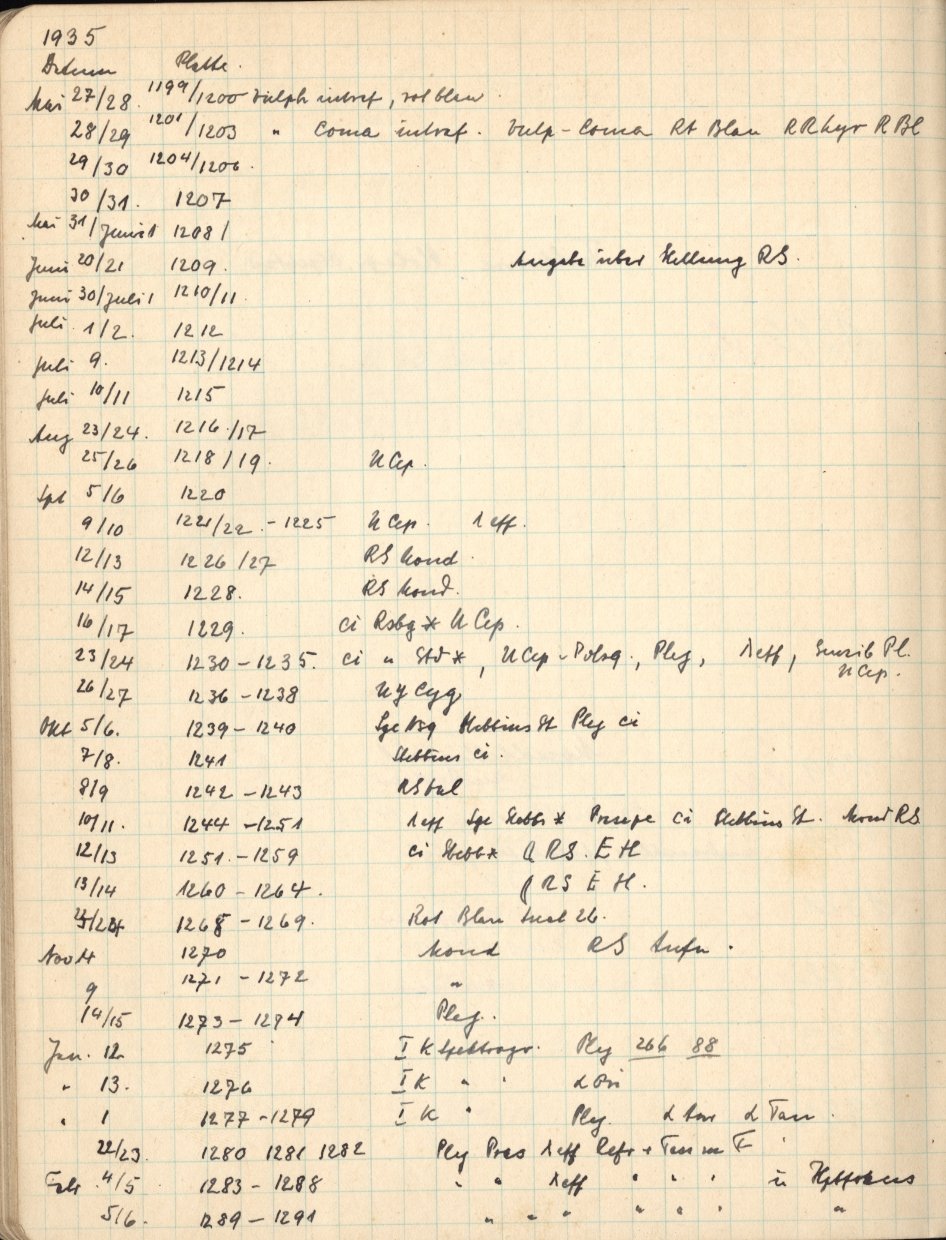 1935
Datum Platte.
Mai 27/28. 1199/1200 Vulp intraf, rot blau
28/29 1201/1203 " Coma intraf. Vulp-Coma Rt Blau R Bl
29/30 1204/1206.
30/31. 1207
Mai 31/Juni 1 1208/
Juni 20/21 1209. Angabe über Stellung RS.
Juni 30/Juli 1 1210/11.
Juli 1/2. 1212
Juli 9. 1213/1214
Juli 10/11 1215
Aug 23/24. 1216/17
25/26 1218/19. U Cep.
Spt 5/6 1220
9/10 1221/22 - 1225 U Cep. λ eff.
12/13 1226/27 RS Mond.
14/15 1228. RS Mond.
16/17 1229. ci * U Cep.
23/24 1230-1235. ci u Std *, U Cep-Polsq., Plej, λ eff, Sensib Pl.
U Cep.
26/27 1236-1238 Cyg
Okt 5/6. 1239-1240 Stebbins St Plej ci
7/8. 1241 Stebbins ci.
8/9 1242-1243
10/11. 1244-1251 λ eff Stebb * Praesepe ci Stebbins St. Mond RS
12/13 1251.-1259 ci Stebb * RS. E H
13/14 1260-1264. RS E H.
1268-1269. Rot Blau
Nov 4 1270 Mond RS Aufn.
9 1271-1272 "
14/15 1273-1274 Plej.
Jan. 12. 1275 I K Spektrogr. Plej 266 88
" 13. 1276 I K " " α Ori
" 1 1277-1279 I K " Plej. α Aur α Tau.
22/23. 1280 1281 1282 Plej Praes λ eff Refr
Febr 4/5 1283-1288 " " λ eff " " "
5/6. 1289-1291 " " " " " " "